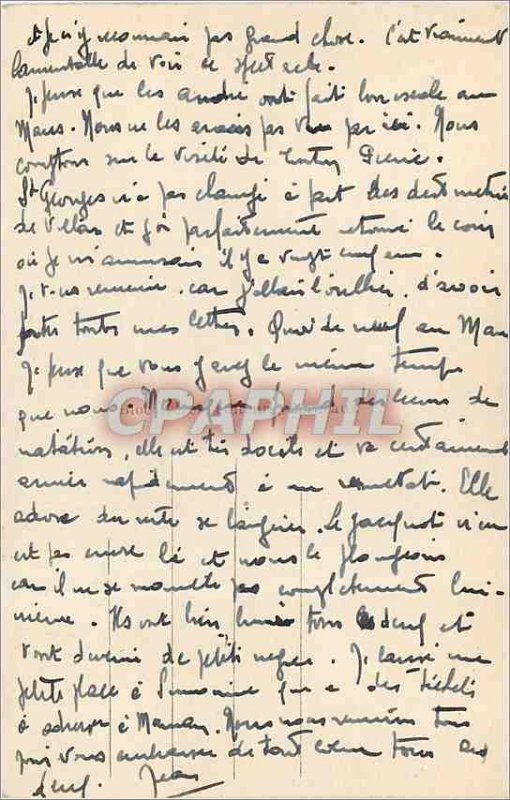 et je n'y reconnais pas grand chose. C'est vraiment
lamentable de voir ce spectacle.
Je pense que les André ont fait bon voyage au
Mans. Nous ne les avons pas vu par ici. Nous
comptons sur la visite de Pierre.
St Georges n'a pas changé à part des destructions
de villas et j'ai parfaitement retrouvé le coin
où je m'amusais il y a vingt cinq ans.
Je vous remercie, car j'allais l'oublier, d'avoir
porter toutes mes lettres. Quoi de neuf au Mans
Je pense que vous y avez le même temps
que nous. prend des leçons de
natation, elle est très docile et va certainement
arriver rapidement à un résultat. Elle
adore du reste se baigner. Le Jacquot n'en
est pas encore là et nous le plongeons
car il ne se mouille pas complètement lui-
même. Ils ont bien bruni tous les deux et
vont devenir de petits nègres. Je laisse une
petite place à Simonne qui a des
à à Maman. Nous nous réunissons tous
pour vous embrasser de tout coeur tous les
deux. Jean
CPAPHIL